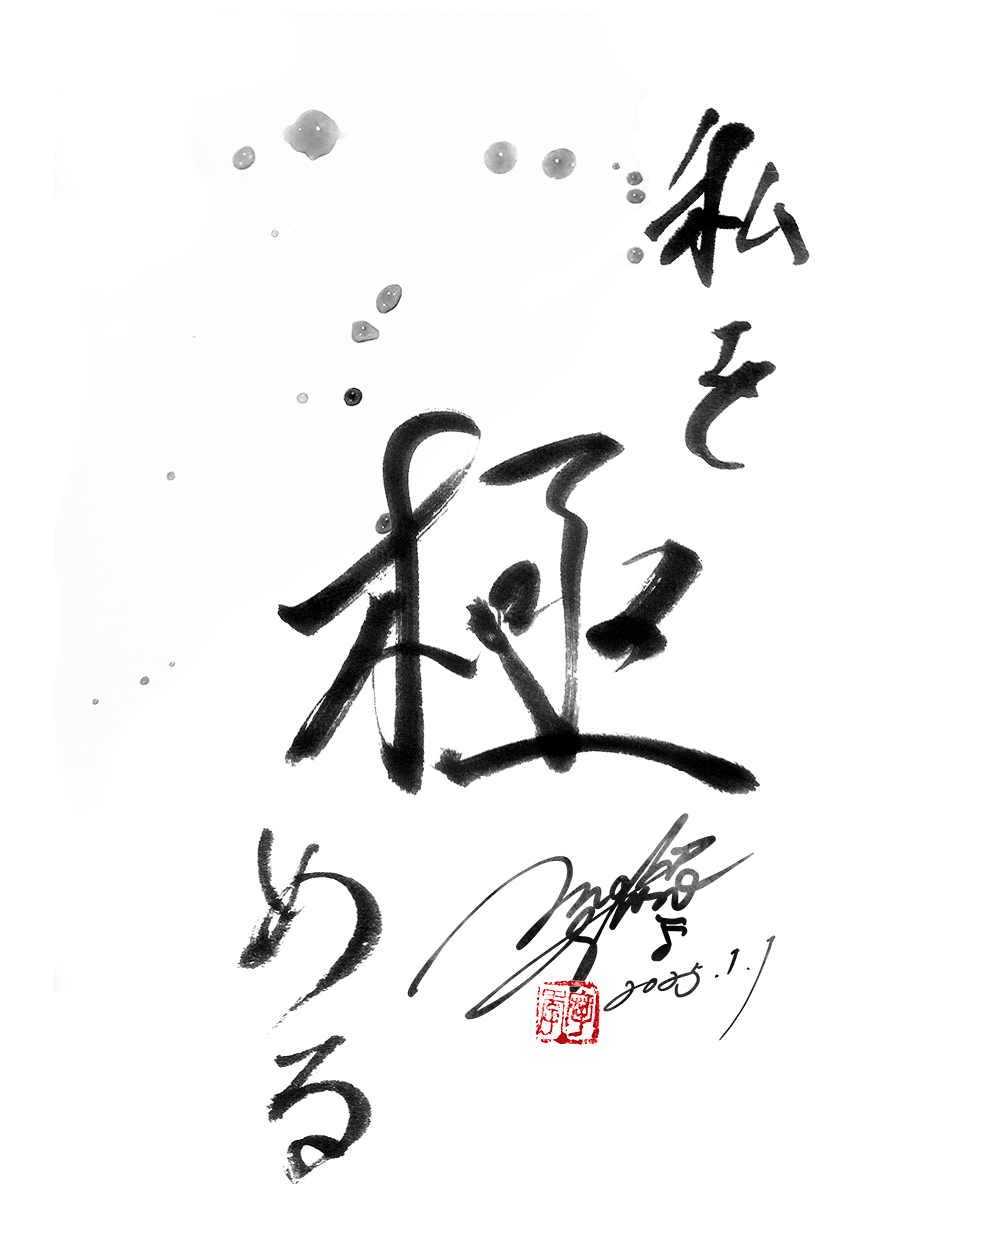 私を
極
める
2025.1.1